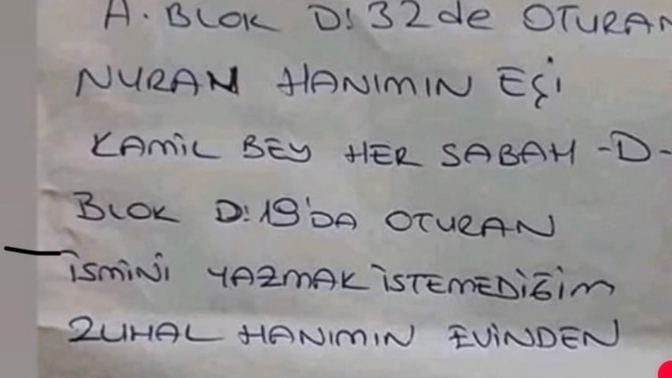 A. BLOK D:32 de OTURAN
NURAN HANIMIN EŞİ
KAMİL BEY HER SABAH -D-
BLOK D:19'DA OTURAN
İSMİNİ YAZMAK İSTEMEDİĞİM
ZUHAL HANIMIN EVİNDEN